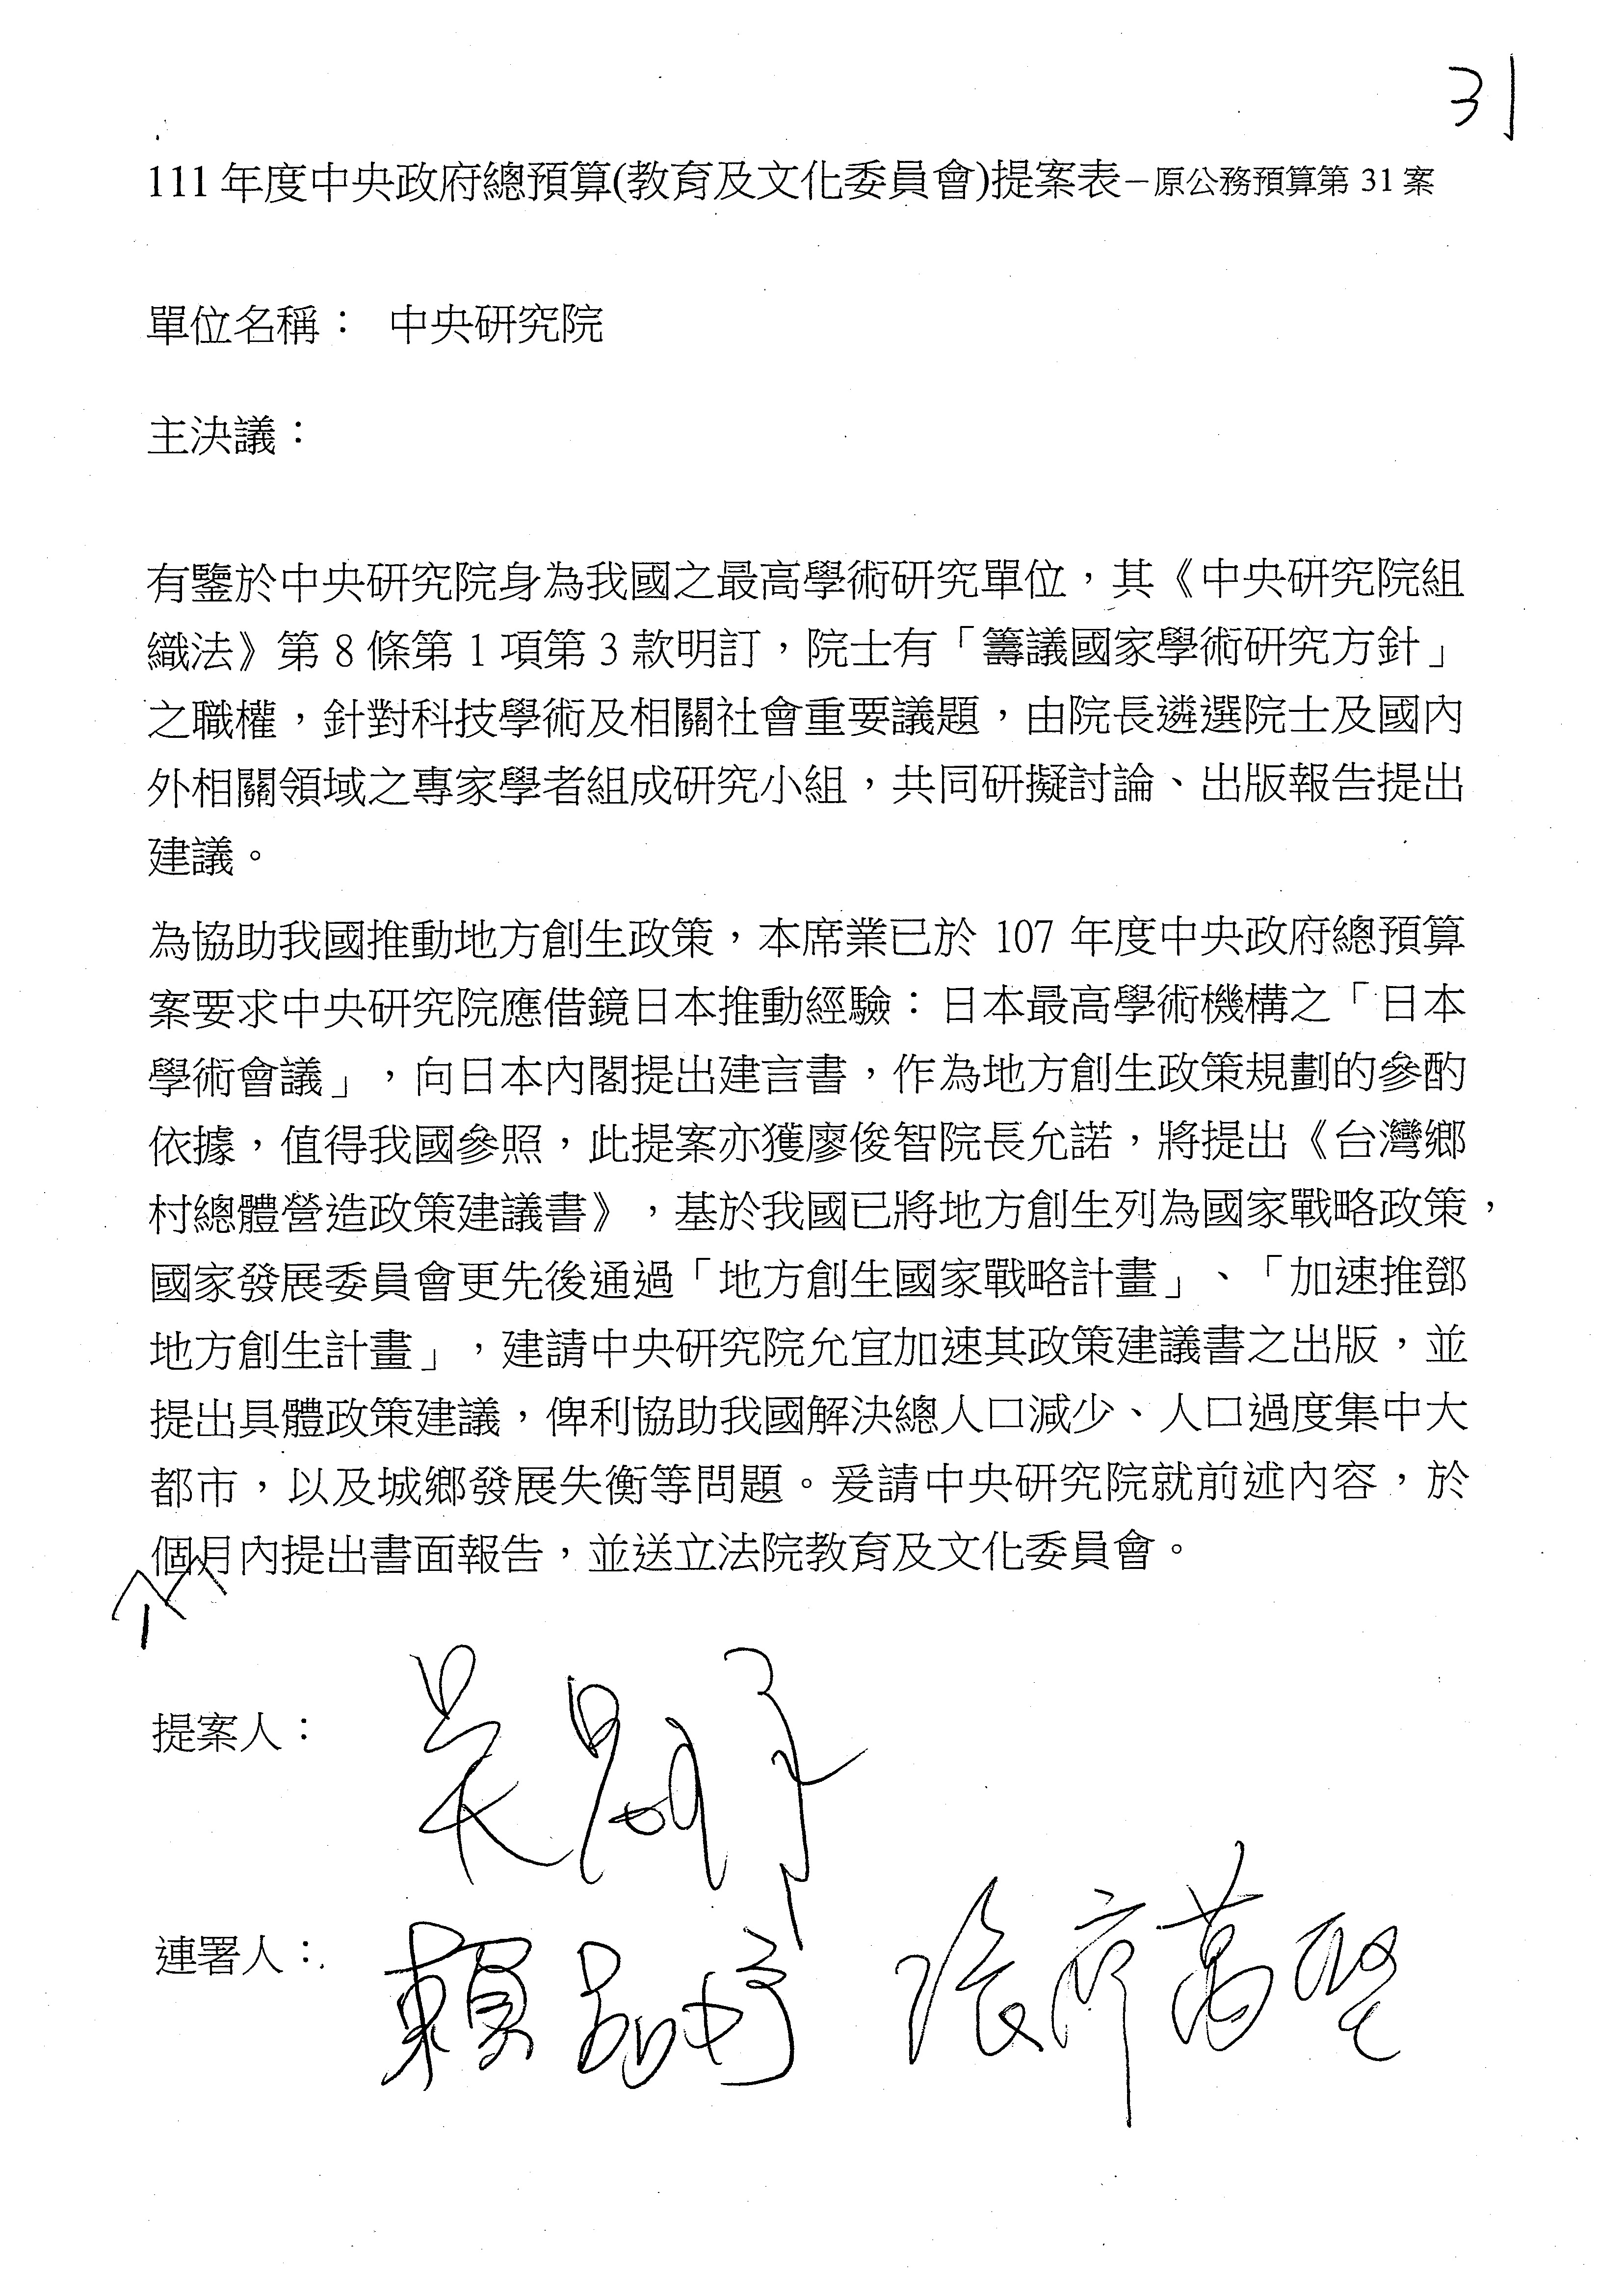 31
111 年度中央政府總預算(教育及文化委員會)提案表－原公務預算第 31 案
單位名稱： 中央研究院
主決議：
有鑒於中央研究院身為我國之最高學術研究單位，其《中央研究院組
織法》第 8 條第 1 項第 3 款明訂，院士有「籌議國家學術研究方針」
之職權，針對科技學術及相關社會重要議題，由院長遴選院士及國內
外相關領域之專家學者組成研究小組，共同研擬討論、出版報告提出
建議。
為協助我國推動地方創生政策，本席業已於 107 年度中央政府總預算
案要求中央研究院應借鏡日本推動經驗：日本最高學術機構之「日本
學術會議」，向日本內閣提出建言書，作為地方創生政策規劃的參酌
依據，值得我國參照，此提案亦獲廖俊智院長允諾，將提出《台灣鄉
村總體營造政策建議書》，基於我國已將地方創生列為國家戰略政策，
國家發展委員會更先後通過「地方創生國家戰略計畫」、「加速推鄧
地方創生計畫」，建請中央研究院允宜加速其政策建議書之出版，並
提出具體政策建議，俾利協助我國解決總人口減少、人口過度集中大
都市，以及城鄉發展失衡等問題。爰請中央研究院就前述內容，於
個月內提出書面報告，並送立法院教育及文化委員會。
提案人：
連署人： 賴品妤 張廖萬堅